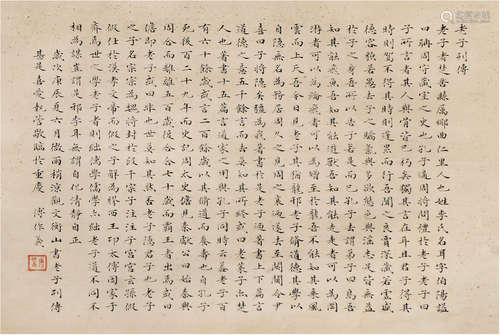 老子列傳
老子者楚苦縣厲鄉曲仁里人也姓李氏名耳字伯陽謚
曰聃周守藏室之史也孔子適周將問禮於老子老子曰
子所言者其人與骨皆已朽矣獨其言在耳且君子得其
時則駕不得其時則蓬累而行吾聞之良賈深藏若虛盛
德容貌若愚去子之驕氣與多欲態色與淫志是皆無益
於子之身吾所以告子若是而已孔子去謂弟子曰鳥吾
知其能飛魚吾知其能游獸吾知其能走走者可以為罔
游者可以為綸飛者可以為矰至於龍吾不能知其乘風
雲而上天吾今日見老子其猶龍邪老子脩道德其學以
自隱無名為務居周久之見周之衰迺遂去至關關令尹
喜曰子將隱矣彊為我著書於是老子迺著書上下篇言
道德之意五千餘言而去莫知其所終或曰老萊子亦楚
人也著書十五篇言道家之用與孔子同時云蓋老子百
有六十餘歲或言二百餘歲以其脩道而養壽也自孔子
死後百二十九年而史記周太史儋見秦獻公曰始秦與
周合而離離五百歲復合合七十歲而霸王者出焉或曰
儋即老子或曰非也世莫知其然否老子隱君子也老子
之子名宗宗為魏將封於段干宗子注注子宮宮玄孫假
假仕於漢孝文帝而假之子解為膠西王卬太傅因家于
齊焉世之學老子者則絀儒學儒學亦絀老子道不同不
相為謀豈謂是邪李耳無為自化清靜自正
歲次庚辰夏六月微雨稍涼觀文衡山書老子列傳
甚是喜愛執管敬臨於重慶 傅作義